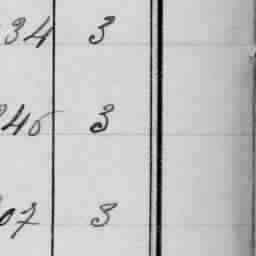 34 3
45 3
07 3